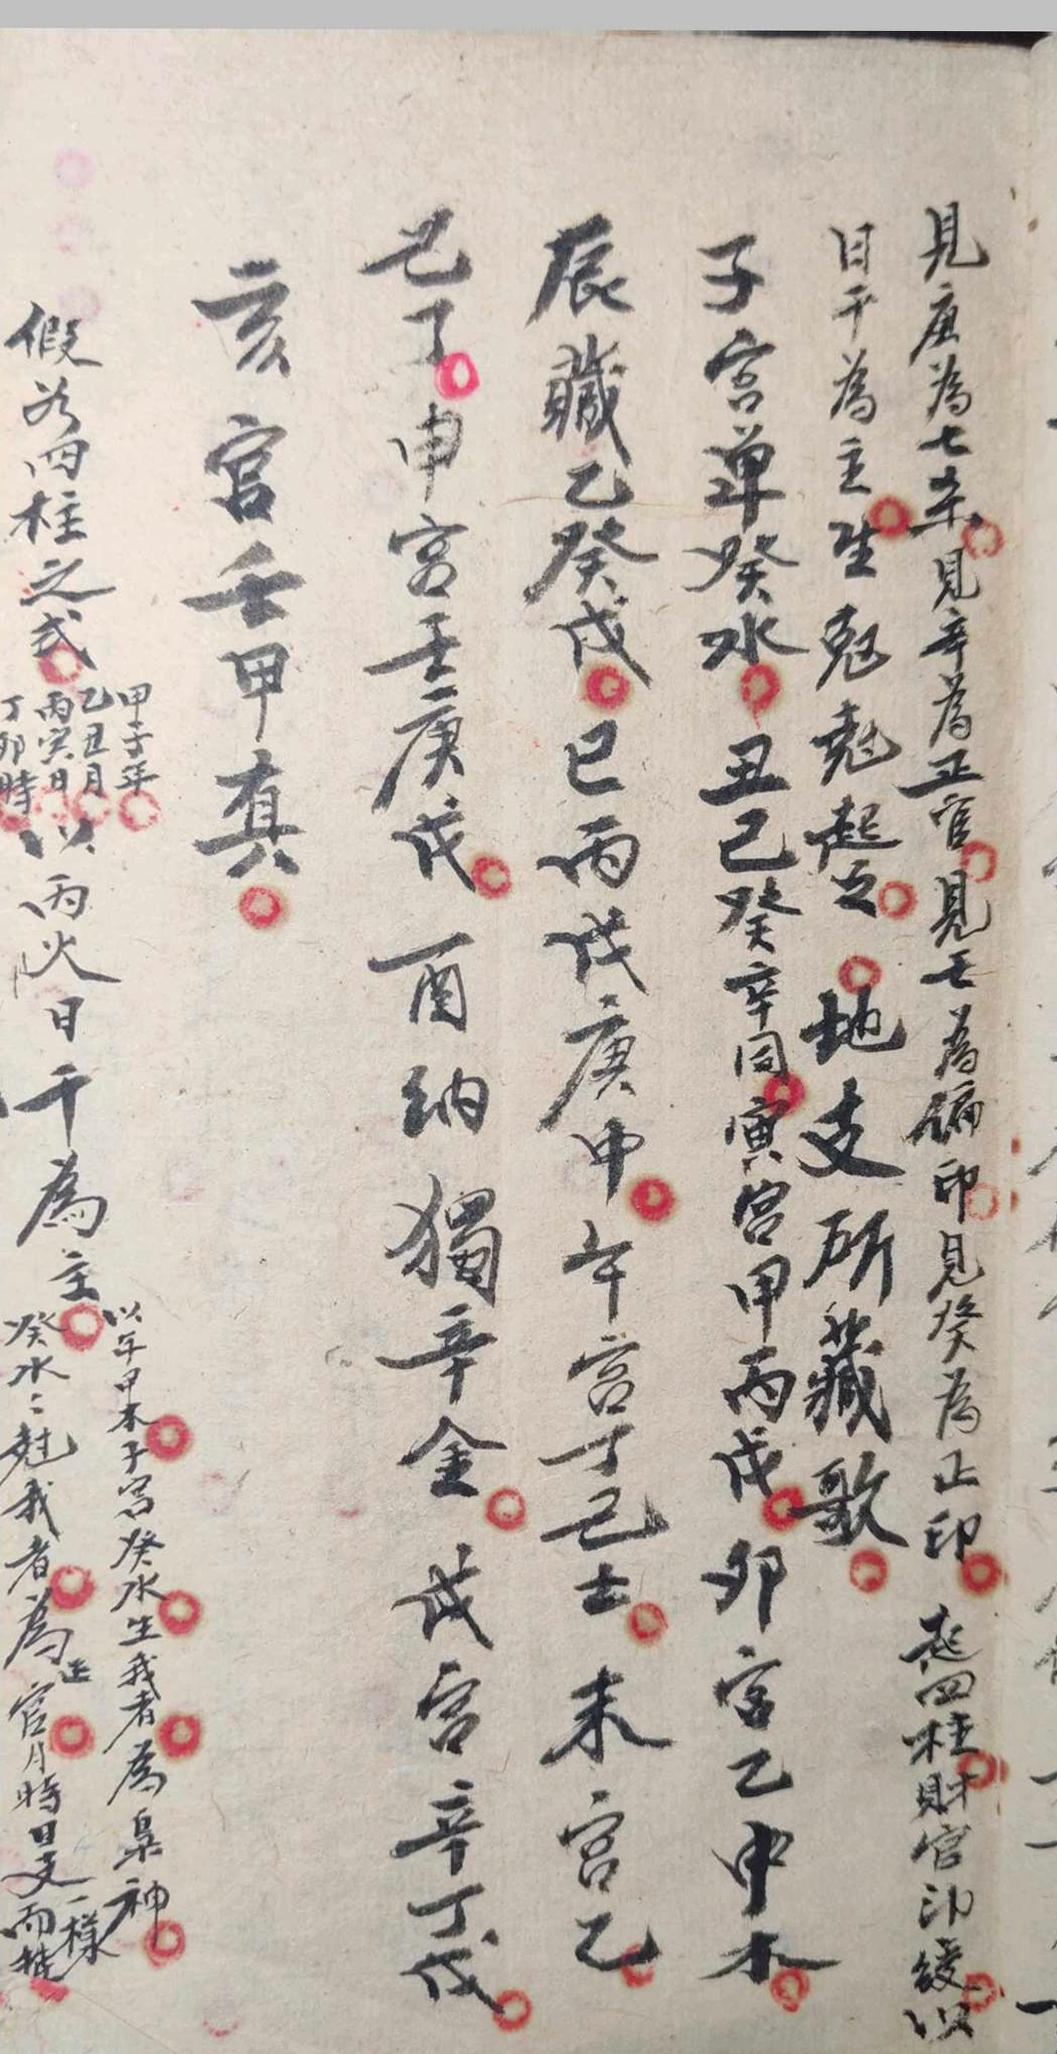 見庚為七杀見辛為正官見壬為偏印見癸為正印起四柱財官印綬以
日干為主生剋起之地支所藏歌
子宮單癸水丑己癸辛同寅宮甲丙戊卯宮乙中木
辰藏乙癸戊巳丙戊庚中午宮丁己土未宮乙
己丁申宮壬庚戊酉納獨辛金戌宮辛丁戊
亥宮壬甲真
假如四柱之式
甲子年
乙丑月
丙寅日
丁卯時
以丙火日干為主
以年甲木子宮癸水生我者為梟神
癸水水剋我者為正官月時日支一樣而推